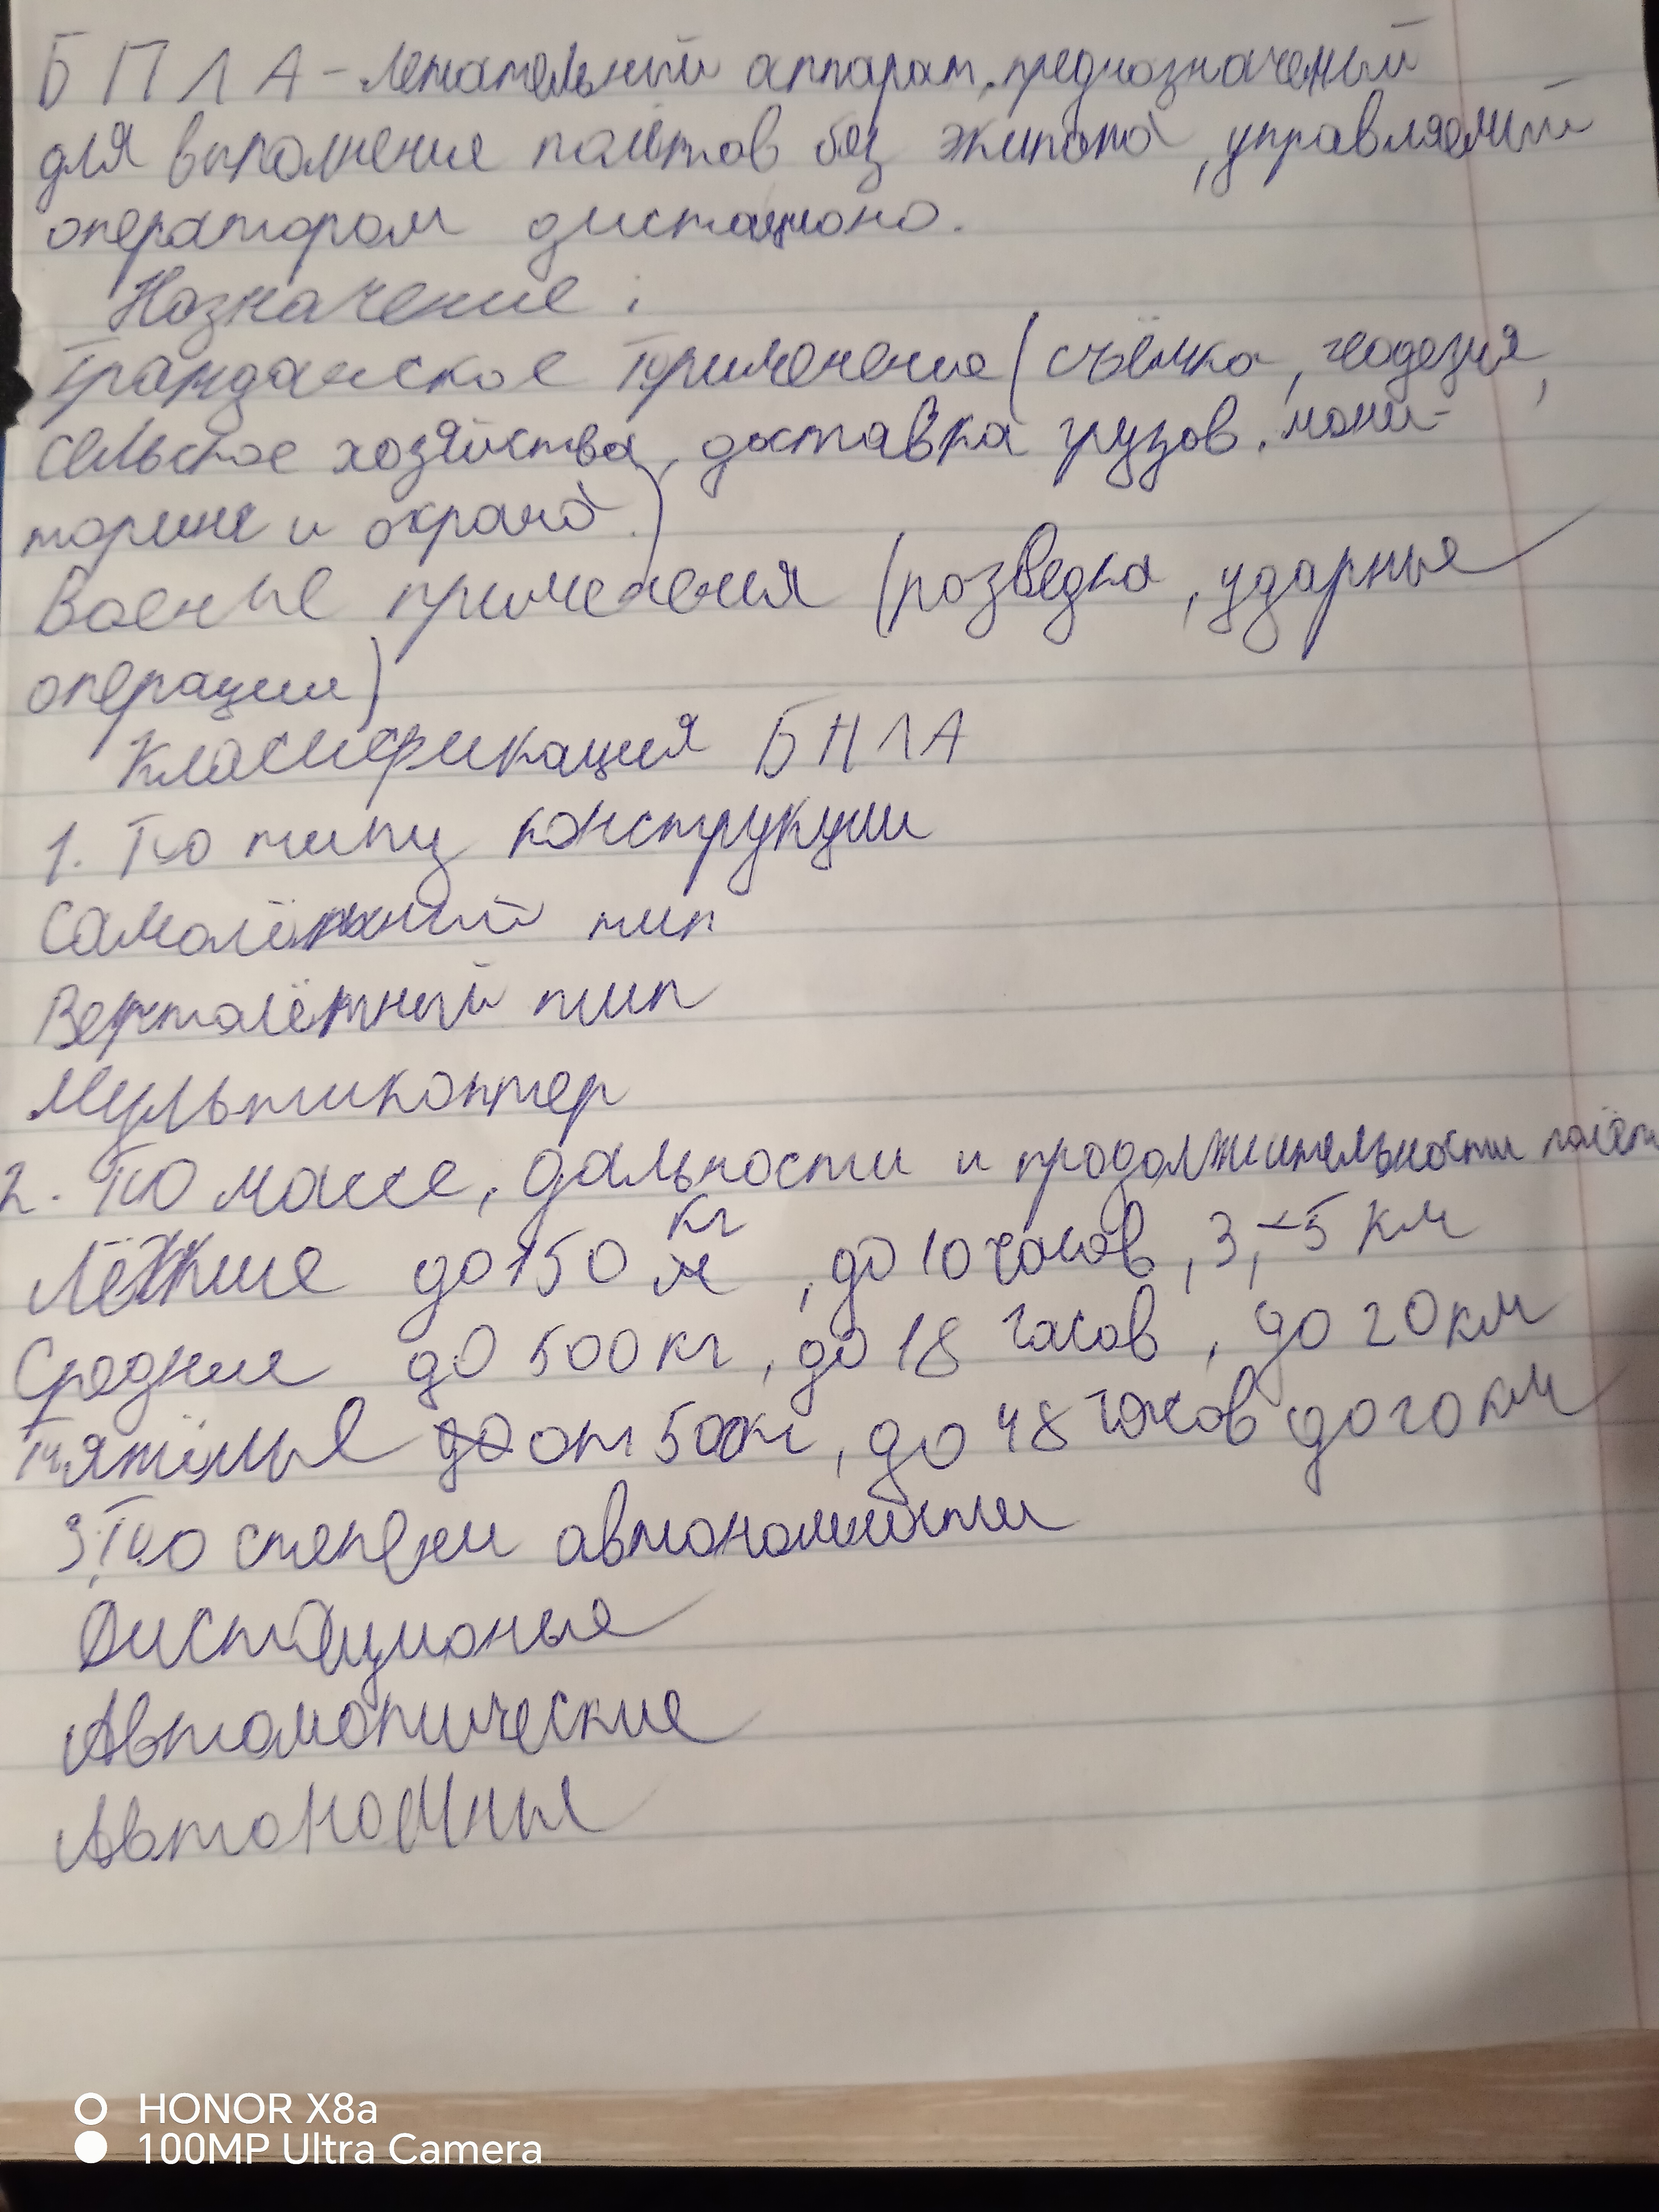 БПЛА - летательный аппарат, предназначеный
для выполнения полётов без экипажа, управляемый
оператором дистационо.
Назначение:
Гражданское применение (съёмка, геодезия,
сельское хозяйства, доставка грузов, мони-
торинг и охрана.)
Военые применения (розведка, ударные
операции)
Класификация БПЛА
1. По типу конструкции
Самолётный тип
Вертолётный тип
Мультикоптер
2. По массе, дальности и продолжительности полёта
Лёгкие до 150 кг, до 10 часов, 3,-5 км
Средние до 500 кг, до 18 часов, до 20 км
Тяжёлые от 500кг, до 48 часов до 20 км
3. По степени автономности
Дистационые
Автоматические
Автономные
HONOR X8a
100MP Ultra Camera